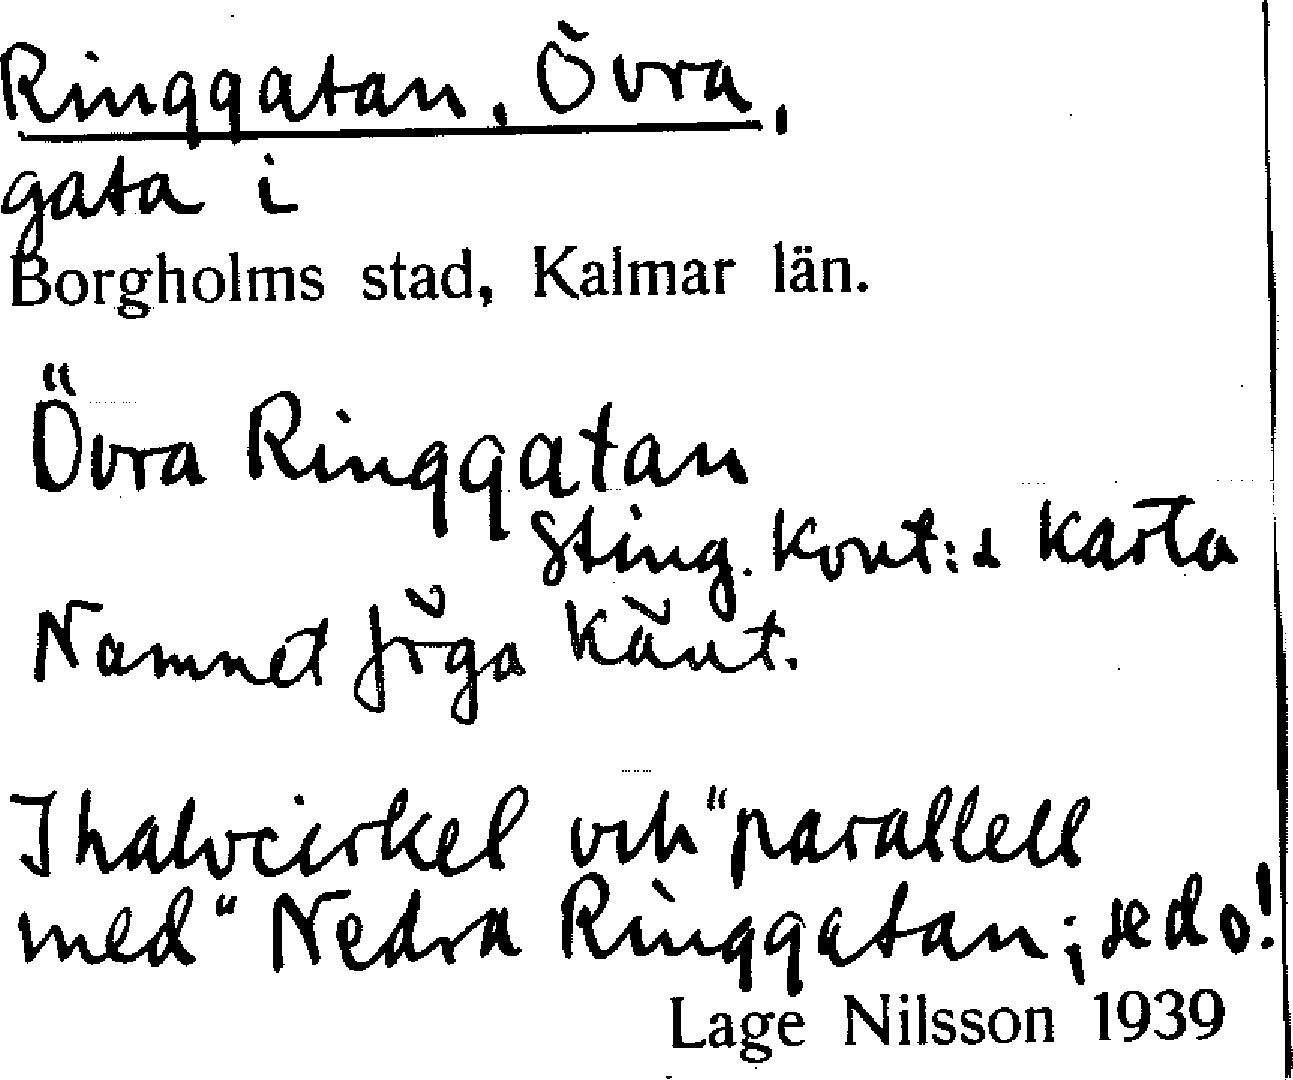 Ringgatan, Övra,
gata i
Borgholms stad, Kalmar län.
Övra Ringgatan
Sting. Kont:s Karta
Namnet föga känt.
I halvcirkel och "parallell
med" Nedra Ringgatan; se d o!
Lage Nilsson 1939